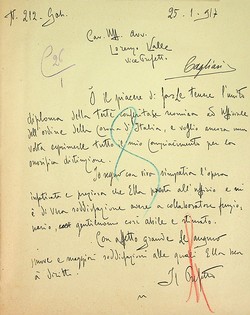 N. 212. Gab. 25-1-917
Cav. Uff. avv.
Lorenzo Valle
viceprefetto
Cagliari
Ò il piacere di farLe tenere l'unito
diploma della Sua nomina ad Uffiziale
dell'ordine della Corona d'Italia, e voglio ancora una
volta esprimerle tutto il mio compiacimento per la
onorifica distinzione.
Io seguo con viva simpatia l'opera
che Ella presta all'ufficio e mi
è di viva soddisfazione avere a collaboratore
così abile e stimato.
Con affetto grande Le auguro
nuove e maggiori soddisfazioni alle quali Ella ben
à diritto.
Il Prefetto